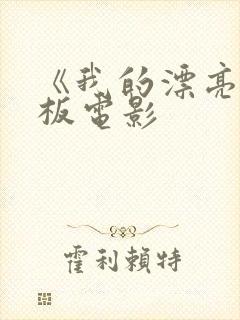 《我的漂亮
板電影
霍利賴特